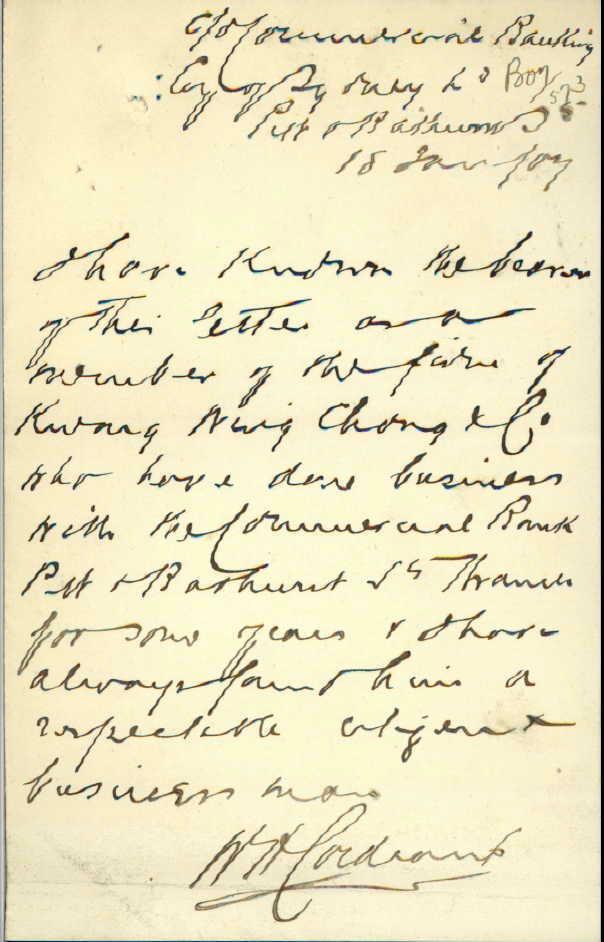 c/o Commercial Banking
Coy of Sydney Ld
Pitt & Bathurst St
18 Jan /07
I have Known the bearer
of this letter as a
member of the firm of
Kwong Wing Chong & Co
who have done business
with the Commercial Bank
Pitt & Bathurst Sts Branch
for some years & I have
always found him a
respectable diligent
business man
W H